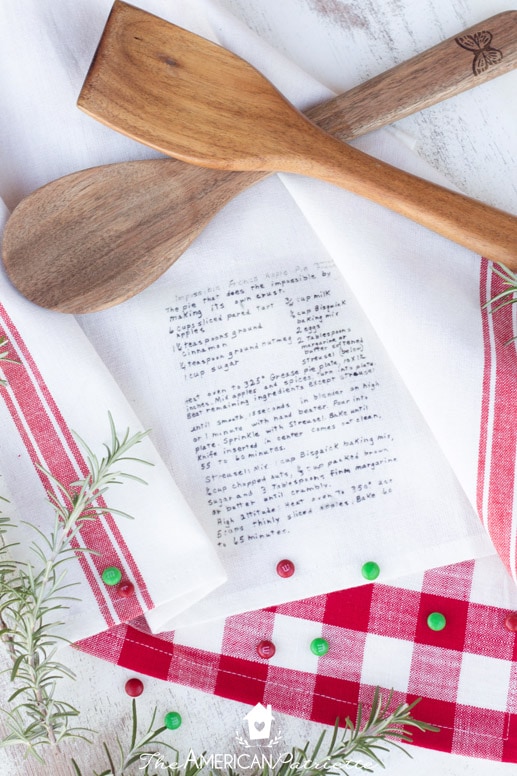 Impossible French Apple Pie
The pie that does the impossible by
making its own crust.
6 cups sliced pared tart
apples
1¼ teaspoons ground
cinnamon
¼ teaspoon ground nutmeg
1 cup sugar
¾ cup milk
½ cup Bisquick
baking mix
2 eggs
2 Tablespoons
margarine or
butter softened
Streusel (below)
Heat oven to 325° Grease pie plate, 10x1½
inches. Mix apples and spices; turn into plate
Beat remaining ingredients except streusel
until smooth, 15 seconds in blender on high
or 1 minute with hand beater. Pour into
plate. Sprinkle with Streusel. Bake until
knife inserted in center comes out clean,
55 to 60 minutes.
Streusel: Mix 1 cup Bisquick baking mix,
½ cup chopped nuts, ⅓ cup packed brown
sugar and 3 Tablespoons firm margarine
or butter until crumbly.
High Altitude Heat oven to 350°
5 cups thinly sliced apples. Bake 60
to 65 minutes.
The AMERICAN Patriette